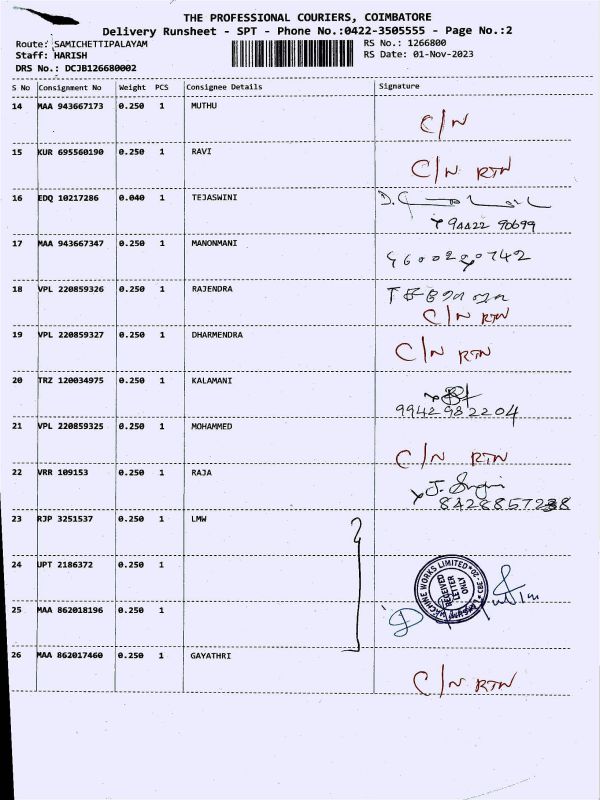 THE PROFESSIONAL COURIERS, COIMBATORE
Delivery Runsheet - SPT - Phone No.:0422-3505555 - Page No.:2
Route: SAMICHETTIPALAYAM RS No.: 1266800
Staff: HARISH RS Date: 01-Nov-2023
DRS No.: DCJB126680002
S No Consignment No Weight PCS Consignee Details Signature
14 MAA 943667173 0.250 1 MUTHU
C/N
15 KUR 695560190 0.250 1 RAVI
C/N RTN
16 EDQ 10217286 0.040 1 TEJASWINI
94422 90699
17 MAA 943667347 0.250 1 MANONMANI
18 VPL 220859326 0.250 1 RAJENDRA
C/N RTN
19 VPL 220859327 0.250 1 DHARMENDRA
C/N RTN
20 TRZ 120034975 0.250 1 KALAMANI
99429 82204
21 VPL 220859325 0.250 1 MOHAMMED
C/N RTN
22 VRR 109153 0.250 1 RAJA
23 RJP 3251537 0.250 1 LMW
24 UPT 2186372 0.250 1
MACHINE WORKS LIMITED
RECEIVED
LETTER
ONLY
25 MAA 862018196 0.250 1
26 MAA 862017460 0.250 1 GAYATHRI
C/N RTN